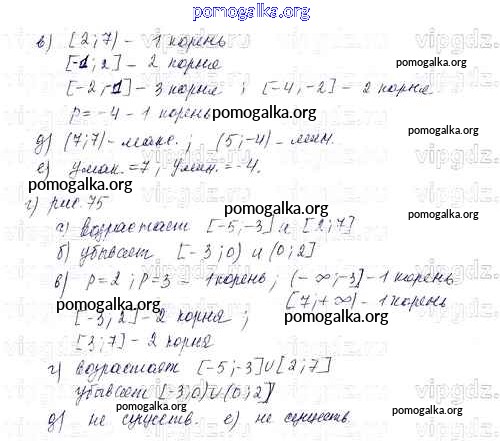 pomogalka.org
в) [2; 7) - 1 корень
[-1; 2] - 2 корня
[-2; -1] - 3 корня ; [-4, -2] - 2 корня
p = -4 - 1 корень pomogalka.org
pomogalka.org
д) (7; 7) - макс. ; (5; -4) - мин.
е) y мак. = 7 ; y мин. = -4.
pomogalka.org pomogalka.org
г) рис. 75
а) возрастает [-5, -3] и [2; 7]
б) убывает [-3; 0) и (0; 2]
в) p = 2 ; p = 3 - 1 корень ; (-∞; -3] - 1 корень
[7; +∞) - 1 корень
pomogalka.org pomogalka.org
[-3; 2] - 2 корня ;
[3; 7] - 2 корня
г) возрастает [-5; -3]∪[2; 7]
убывает [-3; 0)∪(0; 2]
д) не существ. е) не существ.
pomogalka.org pomogalka.org
vipgdz.